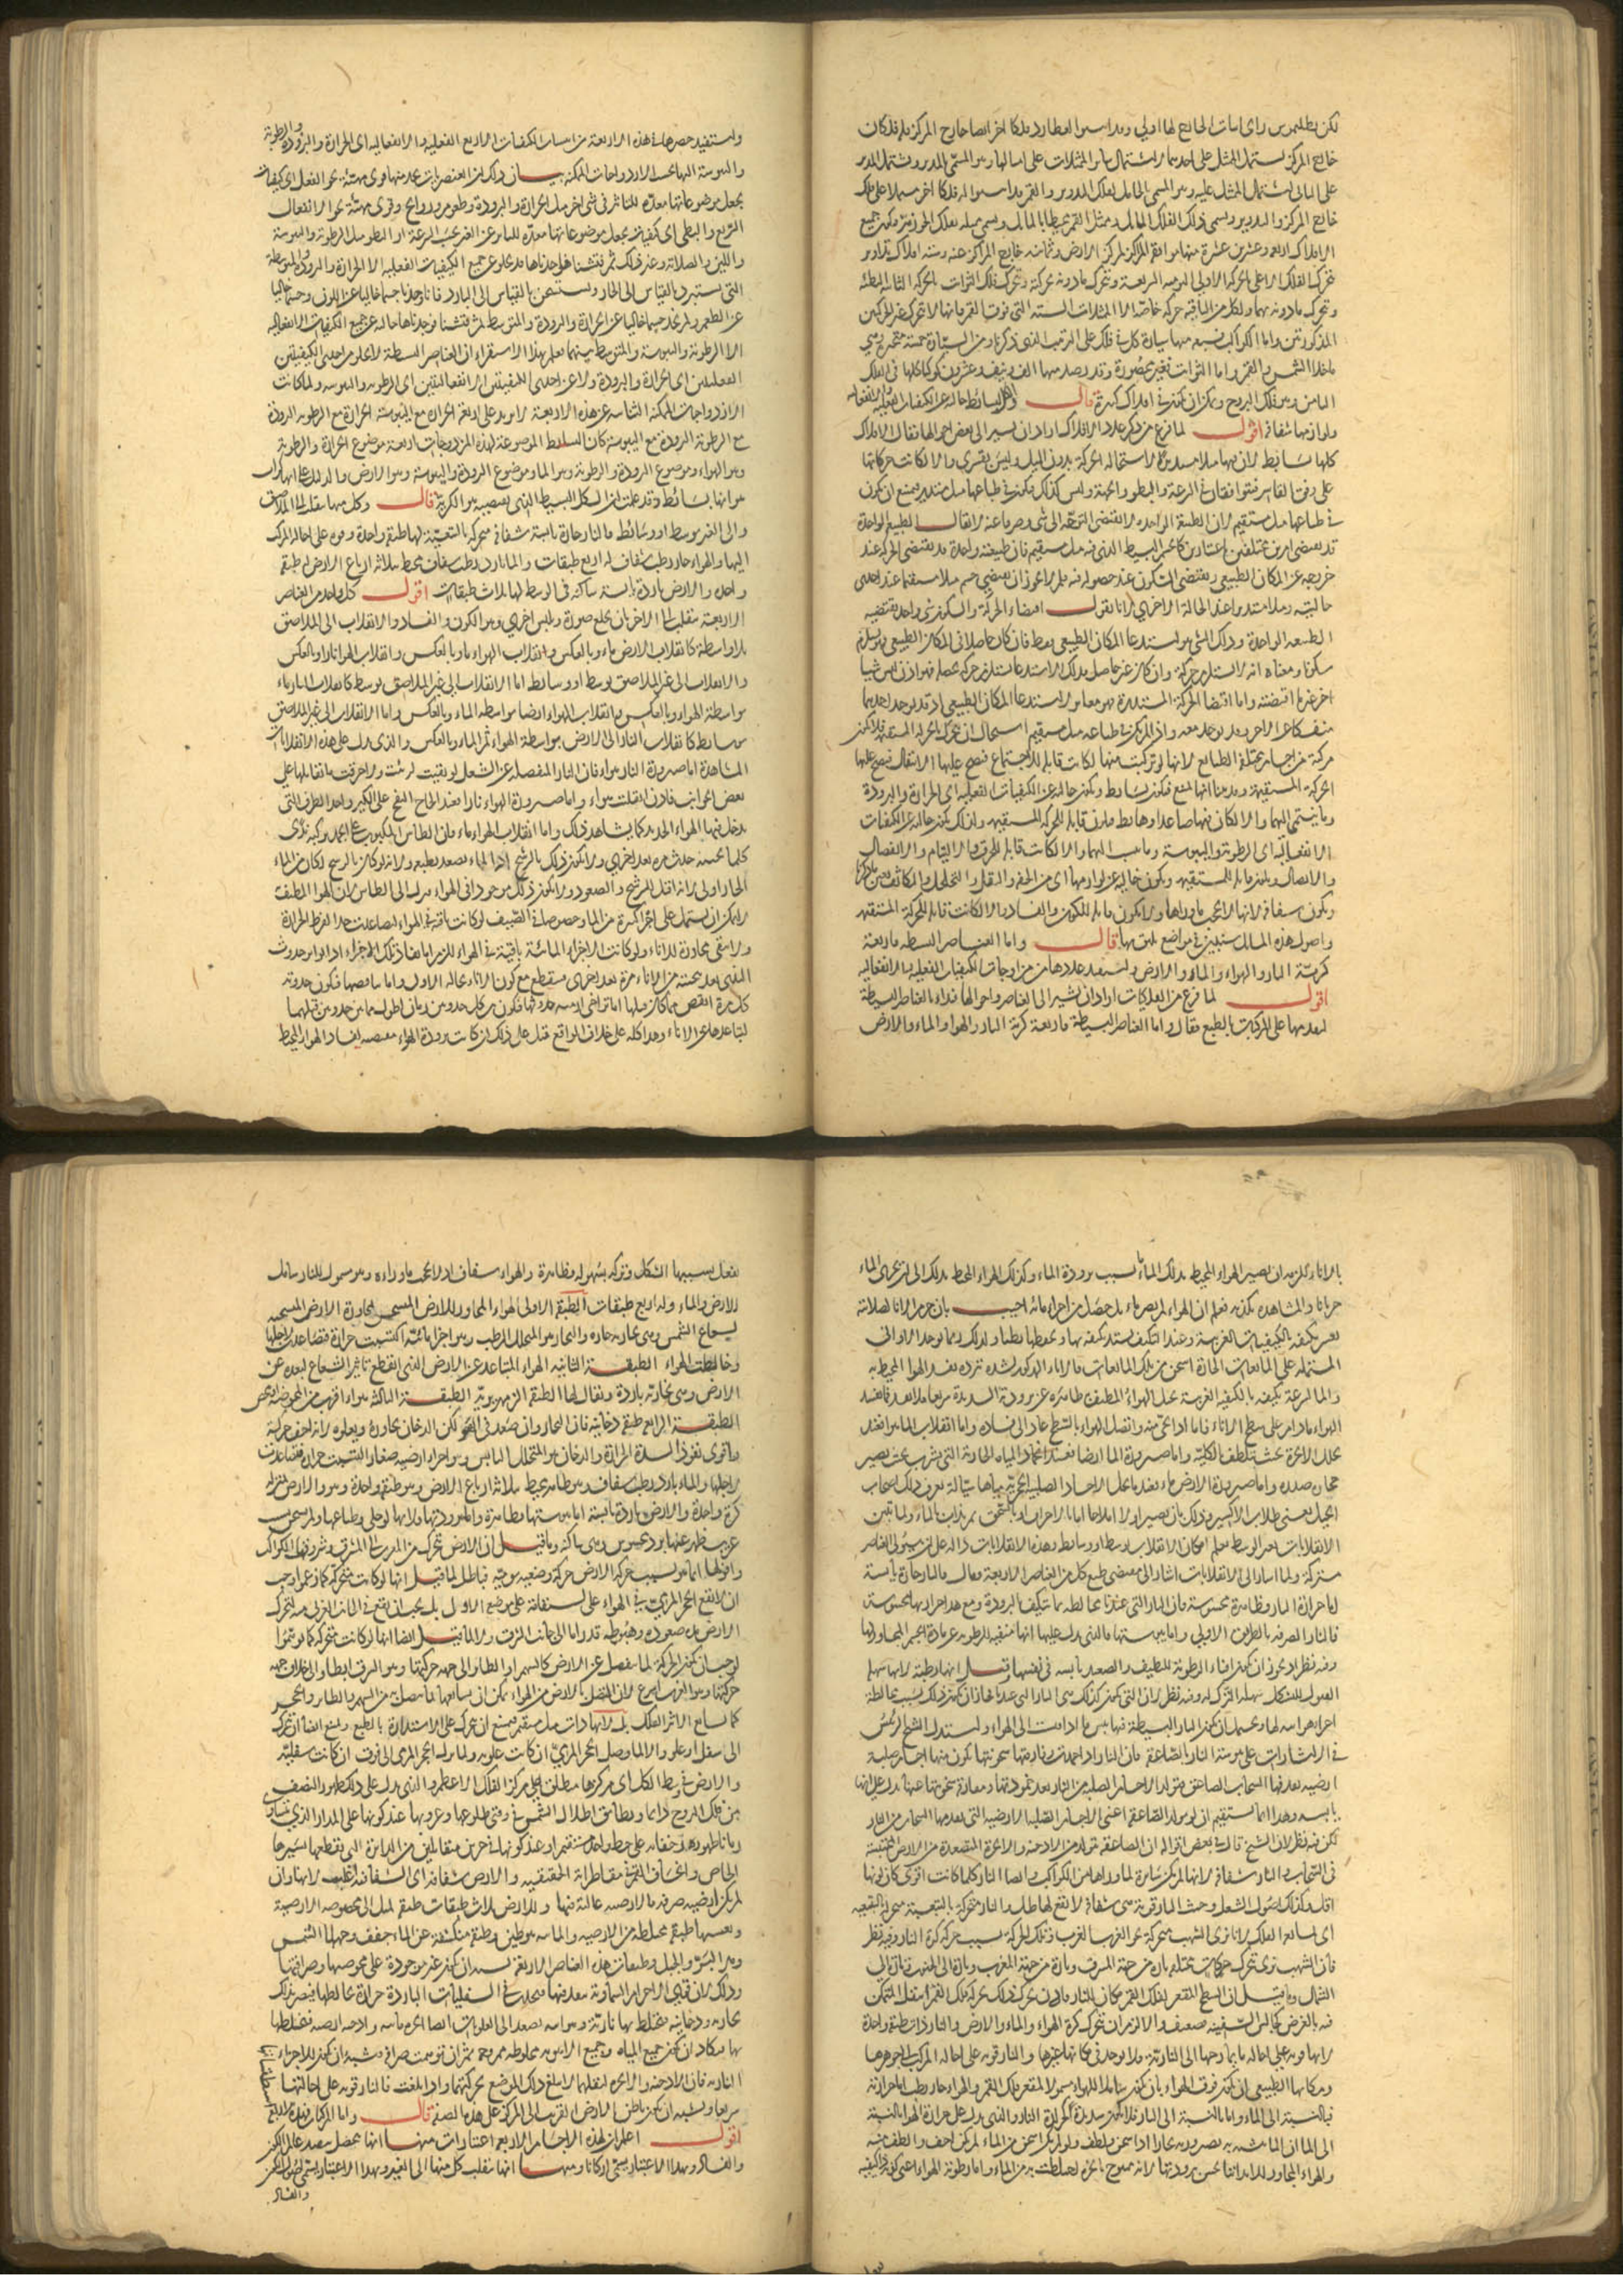 لكن بطلميوس رأى اثبات الخارج لها اولى وقد اثبتوا لعطارد فلكا اخر ايضا خارج المركز فله فلكان
خارج المركز يشتمل الممثل على احدهما اشتمال سائر الممثلات على امثالها وهو المسمى المدير ويشتمل المدير
على الثانى اشتمال الممثل عليه وهو المسمى الحامل لفلك التدوير والقمر قد اثبتوا له فلكا اخر مشتملا على فلك
خارج المركز والتدوير ويسمى ذلك الفلك المائل وممثل القمر يحيط بالمائل ويسمى ممثله بفلك الجوزهر فيكون جميع
الافلاك اربعة وعشرين عشرة منها موافقة المركز لمركز الارض وثمانية خارج المراكز عنه وستة افلاك تداوير
فيتحرك الفلك الاعلى الحركة الاولى اليومية السريعة ويتحرك ما دونه بحركته ويتحرك فلك الثوابت الحركة الثانية البطيئة
ويتحرك ما دونه بهما ولكل من الباقية حركة خاصة الا الممثلات الستة التى فوق القمر فانها لا تتحرك غير الحركتين
المذكورتين واما الكواكب فسبع منها سيارة كل فى فلك على الترتيب الذى ذكرنا ومن السيارة خمسة متحيرة وهى
ما خلا الشمس والقمر واما الثوابت فغير محصورة وقد رصد منها الف ونيف وعشرون كوكبا كلها فى الفلك
الثامن وهو فلك البروج ويمكن ان يكون فى افلاك كثيرة قال والكل بسائط خالية عن الكيفيات الفعلية والانفعالية
ولوازمها شفافة اقول لما فرغ من ذكر عدد الافلاك اراد ان يشير الى بعض احوالها فقال الافلاك
كلها بسائط لان فيها ميلا مستديرا لاستحالة الحركة بدون الميل وليس بقسرى والا لكانت حركاتها
على وفق القاسر فتوافقا فى السرعة والبطؤ والجهة وليس كذلك فيكون فى طباعها ميل مستدير فيمتنع ان يكون
فى طباعها ميل مستقيم لان الطبيعة الواحدة لا تقتضى التوجه الى شئ وصرفا عنه لا يقال الطبيعة الواحدة
قد تقتضى امرين مختلفين باعتبارين كالجسم البسيط الذى فيه ميل مستقيم فان طبيعته واحدة قد يقتضى الحركة عند
خروجه عن المكان الطبيعى ويقتضى السكون عند حصوله فيه فلم لا يجوز ان يقتضى جسم ميلا مستقيما عند احدى
حالتيه وميلا مستديرا عند الحالة الاخرى لانا نقول اقتضاء الحركة والسكون شئ واحد تقتضيه
الطبيعة الواحدة وذلك الشئ هو استدعاء المكان الطبيعى فقط فان كان حاصلا فى المكان الطبيعى فهو يستلزم
سكونا ومعناه انه لا يستلزم حركة وان كان غير حاصل فذلك الاستدعاء يستلزم حركة تحصله فهو اذن ليس شيئا
اخر غير ما اقتضته واما اقتضاء الحركة المستديرة فهو مغاير لاستدعاء المكان الطبيعى اذ قد يوجد احدهما
منفكا عن الاخر وقد يوجد معه واذا لم يكن فى طباعه ميل مستقيم استحال ان يتحرك بالحركة المستقيمة فلا يكون
مركبة من اجسام مختلفة الطبائع لانها لو تركبت منها لكانت قابلة للاجتماع فتصح عليها الانتقال فتصح عليها
الحركة المستقيمة وقد بينا انها تمتنع فتكون بسائط وتكون خالية عن الكيفيات الفعلية اى الحرارة والبرودة
وما ينتمى اليهما والا لكان فيها صاعد او هابط فلزم قابلة للحركة المستقيمة ولذلك تكون خالية عن الكيفيات
الانفعالية اى الرطوبة واليبوسة وما ينسب اليهما والا لكانت قابلة للخرق والالتيام والانفصال
والاتصال ويلزم قابلية المستقيم ويكون خالية عن لوازمها اى من الخفة والثقل والتخلخل والتكاثف
ويكون شفافة لانها لا تحجب ما وراءها ولا يكون قابلة للكون والفساد والا لكانت قابلة للحركة المستقيمة
واصول هذه المسائل ستبين فى مواضع يليق بها قال واما العناصر البسيطة فاربعة
كرية النار والهواء والماء والارض واستفيد عددها من مزاوجات الكيفيات الفعلية والانفعالية
اقول لما فرغ من الفلكيات اراد ان يشير الى العناصر واحوالها فبدأ بالعناصر البسيطة
لتقدمها على المركبات بالطبع فقال واما العناصر البسيطة فاربعة كرية النار والهواء والماء والارض
واستفيد حصرها فى هذه الاربعة من اسباب الكيفيات الاربع الفعلية والانفعالية اى الحرارة والبرودة والرطوبة
واليبوسة الباعث الازدواجات الممكنة بيان ذلك ان العنصريات نجد فيها قوى مهيئة نحو الفعل اى كيفيات
تجعل موضوعاتها معدة للتاثر فى شئ اخر مثل الحرارة والبرودة وطعوم وروائح وقوى مهيئة نحو الانفعال
السريع والبطئ اى كيفيات تجعل موضوعاتها معدة للتاثر عن الغير بحسب السرعة او البطؤ مثل الرطوبة واليبوسة
واللين والصلابة وغير ذلك ثم فتشنا فوجدناها قد تخلو عن جميع الكيفيات الفعلية الا الحرارة والبرودة والمتوسطة
التى تستبرد بالقياس الى الحار وتستسخن بالقياس الى البارد فانا وجدنا جسما خاليا عن اللون وجسما خاليا
عن الطعم ولم نجد جسما خاليا عن الحرارة والبرودة والمتوسط ثم فتشنا فوجدناها خالية عن جميع الكيفيات الانفعالية
الا الرطوبة واليبوسة والمتوسط بينهما فعلم بهذا الاستقراء ان العناصر البسيطة لا يخلو من احدى الكيفيتين
الفعليتين اى الحرارة والبرودة ولا عن احدى الكيفيتين الانفعاليتين اى الرطوبة واليبوسة ولما كانت
الازدواجات الممكنة الثنائية عن هذه الاربعة لا يزيد على اربعة الحرارة مع اليبوسة الحرارة مع الرطوبة البرودة
مع الرطوبة البرودة مع اليبوسة كان البسائط الموضوعة لهذه المزدوجات اربعة موضوع الحرارة والرطوبة
وهو الهواء وموضوع البرودة والرطوبة وهو الماء وموضوع البرودة واليبوسة وهو الارض والدليل على انها كرات
هو انها بسائط وقد علمت ان الشكل البسيط الذى يقتضيه هو الكرية قال وكل منها ينقلب الى الملاصق
والى الغير بوسط او وسائط فالنار حارة يابسة شفافة متحركة بالتبعية لها طبقة واحدة وقوة على احالة المركب
اليها والهواء حار رطب شفاف له اربع طبقات والماء بارد رطب شفاف محيط بثلاثة ارباع الارض له طبقة
واحدة والارض باردة يابسة ساكنة فى الوسط لها ثلاث طبقات اقول كل واحد من العناصر
الاربعة ينقلب الى الاخر بان يخلع صورة ويلبس اخرى وهو الكون والفساد والانقلاب الى الملاصق
بلا واسطة كانقلاب الارض ماء وبالعكس وانقلاب الهواء ماء وبالعكس وانقلاب الهواء نارا وبالعكس
والانقلاب الى غير الملاصق بوسط او وسائط اما الانقلاب الى غير الملاصق بوسط كانقلاب النار ماء
بواسطة الهواء وبالعكس وانقلاب الهواء ارضا بواسطة الماء وبالعكس واما الانقلاب الى غير الملاصق
بوسائط كانقلاب النار الى الارض بواسطة الهواء ثم الماء وبالعكس والذى يدل على هذه الانقلابات
المشاهدة اما صيرورة النار هواء فان النار المنفصلة عن الشعل لو بقيت لرئيت ولاحرقت ما تقابلها على
بعض الجوانب فاذن انقلبت هواء واما صيرورة الهواء نارا فعند الحاح النفخ على الكير واحد الطرق التى
يدخل فيها الهواء الجديد كما يشاهد ذلك واما انقلاب الهواء ماء فان الطاس المكبوب على الجمد يركبه ندى
كلما نحيته حدث مرة بعد اخرى ولا يكون ذلك بالرشح اذ الماء لا يصعد بطبعه ولانه لو كان بالرشح لكان من الماء
الحار اولى لانه اقبل للرشح والصعود ولا يكون ذلك موجودا فى الهواء فنزل الى الطاس لان الهواء اللطيف
لا يمكن ان يشتمل على اجزاء كثيرة من الماء وخصوصا فى الصيف لو كانت باقية فى الهواء لتصاعدت جدا لفرط الحرارة
ولا تبقى مجاورة للاناء ولو كانت الاجزاء المائية باقية فى الهواء للزم اما نفاد تلك الاجزاء اذا تواتر حدوث
الندى بعد تنحيته من الاناء مرة بعد اخرى فينقطع مع كون الاناء بحاله الاول واما تناقصها فيكون حدوثه
كل مرة انقص مما كان قبلها اما تراخى ازمنة حدوثها فيكون بين كل حدوثين زمان اطول مما بين حدوثين قبلهما
لتباعدها عن الاناء وهذا كله على خلاف الواقع قيل على ذلك ان كانت برودة الهواء مقتضية لفساد الهواء المحيط
بالاناء فلزم ان يصير الهواء المحيط بذلك الماء ماء بسبب برودة الماء وكذلك الهواء المحيط بذلك الى ان يجرى الماء
جريانا والمشاهدة تكذبه فعلم ان الهواء لم يصر ماء بل حصل من اجزاء مائية اجيب بان جرم الاناء لصلابته
يعسر تكيفه بالكيفيات الغريبة وعند التكيف يشتد تكيفه بها ويحفظها بطيئا ولذلك ربما يوجد الاوانى
المشتملة على المائعات الحارة اسخن من تلك المائعات فالاناء المذكور لشدة تبرده يفسد الهواء المحيط به
والماء لسرعة تكيفه بالكيفية الغريبة يحيل الهواء المطيف ظاهره عن برودة الشديدة سريعا فلا يفسد
الهواء ما دام على سطح الاناء فاما اذا نحى منه واتصل الهواء بالسطح عاد الى فساده واما انقلاب الماء هواء فعند
تحلل الابخرة بحيث يتلطف بالكلية واما صيرورة الماء ارضا فعند انجماد المياه الجارية التى تشرب بحيث يصير
حجارة صلدة واما صيرورة الارض ماء فعند ما يحل الاجساد الصلبة الحجرية مياها سيالة يعرف ذلك اصحاب
الحيل يعنى طلاب الاكسير وذلك بان يصير اولا املاحا اما بالاحراق او بالسحق ثم يذاب بالماء ولما تبين
الانقلابات بغير الوسط فيعلم امكان الانقلاب بوسط او وسائط وهذه الانقلابات دالة على ان هيولى العناصر
مشتركة ولما اشار الى الانقلابات اشار الى مقتضى طبع كل من العناصر الاربعة وقال فالنار حارة يابسة
اما حرارة النار فظاهرة محسوسة فان النار التى عندنا مخالطة بما يتكيف بالبرودة ومع هذا حرارتها محسوسة
فالنار الصرفة بالطريق الاولى واما يبوستها فالذى يدل عليها انها مفنية للرطوبة عن مادة الجسم المجاور لها
وفيه نظر اذ يجوز ان يكون افناء الرطوبة للتلطيف والتصعيد يابسة فى نفسها وقيل انها رطبة لانها سهلة
القبول للتشكل سهلة الترك له وفيه نظر لان التى يكون كذلك هى النار التى عندنا فجاز ان يكون ذلك بسبب مخالطة
اجزاء هوائية لها ويحتمل ان يكون النار البسيطة فيها يبس ما اذا قيست الى الهواء واستدل الشيخ الرئيس
فى الاشارات على يبوسة النار بالصاعقة فان النار اذا خمدت وفارقتها سخونتها يكون منها اجسام صلبة
ارضية يقذفها السحاب الصاعق فتولد الاجسام الصلبة من النار بعد خمودتها ومفارقة سخونتها عنها يدل على انها
يابسة وهذا انما يستقيم ان لو تولد الصاعقة اعنى الاجسام الصلبة الارضية التى يقذفها السحاب من النار
لكن فيه نظر لان الشيخ قال فى بعض اقواله ان الصاعقة تتولد من الادخنة والابخرة المتصعدة من الارض المحتبسة
فى السحاب والنار شفافة لانها لم يكن ساترة لما وراءها من الكواكب وايضا النار كلما كانت اقوى كان لونها
اقل وكذلك اصول الشعل وحيث النار قوية هى شفافة لا يقع لها ظل والنار متحركة بالتبعية متحركة بالتبعية
اى لمتابعة الفلك لانا نرى الشهب متحركة نحو الغرب الى الغرب وتلك الحركة بسبب حركة كرة النار وفيه نظر
فان الشهب ترى تتحرك حركات مختلفة تارة من جهة المشرق وتارة من جهة المغرب وتارة الى الجنوب وتارة الى
الشمال وما قيل ان السطح المقعر لفلك القمر مكان للنار فاذن تتحرك كذلك بحركة فلك القمر كما ينتقل المتمكن
فيه بالعرض كجالس السفينة ضعيف والا لتزم ان تتحرك كرة الهواء والماء والارض والنار ذات طبقة واحدة
لانها قوية على احالة ما يمازجها الى النارية فلا يوجد فى مكانها غيرها والنار قوية على احالة المركب الى جوهرها
ومكانها الطبيعى ان يكون فوق الهواء بان يكون شاملا للهواء مشمولا لمقعر فلك القمر والهواء حار رطب اما حرارته
فبالنسبة الى الماء واما بالنسبة الى النار فلا يكون شديدة كحرارة النار والذى يدل على حرارة الهواء بالنسبة
الى الماء ان الماء يتشبه به بصيرورته بخارا اذا سخن وتلطف ولو لم يكن اسخن من الماء لم يكن اخف والطف منه
والهواء المجاور لابداننا نحس برودتها لانه ممزوج بابخرة اختلطت به من الماء واما رطوبة الهواء اعنى كونه كيفية
يقبل بسببها الشكل وتركه بسهولة فظاهرة والهواء شفاف اذ لا يحجب ما وراءه وهو مشمول للنار شامل
للارض والماء وله اربع طبقات الطبقة الاولى الهواء المجاور للارض المتسخن لمجاورة الارض المتسخنة
بشعاع الشمس وهى بخارية حارة والبخار هو المتحلل الرطب وهو اجزاء مائية اكتسبت حرارة فتصاعدت لاجلها
وخالطت الهواء الطبقة الثانية الهواء المتباعد عن الارض الذى انقطع تاثير الشعاع لبعده عن
الارض وهى بخارية باردة ويقال لها الطبقة الزمهريرية الطبقة الثالثة هواء اقرب من المحوضة
الطبقة الرابع طبقة دخانية فان البخار وان صعد فى الجو لكن الدخان يجاوزه ويعلوه لانه اخف حركة
واقوى نفوذا لشدة الحرارة والدخان هو المتحلل اليابس وهو اجزاء ارضية صغار اكتسبت حرارة فتصاعدت
لاجلها والماء بارد رطب شفاف وهو ظاهر محيط بثلاثة ارباع الارض وهو طبقة واحدة وهو والارض بمنزلة
كرة واحدة والارض باردة يابسة اما يبوستها فظاهرة واما برودتها فلانها لو خلى وطباعها ولم تسخن بسبب
غريب ظهر عنها برد محسوس وهى ساكنة وما قيل ان الارض تتحرك من المغرب الى المشرق وشروق الكواكب
وافولها انما هو بسبب حركة الارض حركة وضعية سريعة فباطل لما قيل انها لو كانت متحركة كما زعموا وجب
ان لا يقع الحجر المرمى فى الهواء على استقامة على موضع الاول بل يجب ان يقع فى الجانب الغربى منه لتحرك
الارض مدة صعوده وهبوطه قدرا ما الى جانب الشرق ولا لما قيل ايضا انها لو كانت متحركة كما توهموا
لوجب ان يكون الحركة لما ينفصل عن الارض كالسهم او الطائر الى جهة حركتها وهو الشرق ابطأ والى خلاف جهة
حركتها وهو الغرب اسرع لان المتصل بالارض من الهواء يمكن ان يشايعها لما يتصل به من السهم والطائر والحجر
كما تشايع الاثير الفلك بل لانها ذات ميل مستقيم فيمتنع ان يتحرك على الاستدارة بالطبع ويمتنع ايضا ان تتحرك
الى سفل او علو والا لما وصل الحجر المرمى ان كانت علوية ولما نزل الحجر المرمى الى فوق ان كانت سفلية
والارض فى وسط الكل اى مركزها منطبق على مركز الفلك الاعظم والذى يدل على ذلك ظهور النصف
من فلك البروج دائما وتطابق اظلال الشمس فى وقتى طلوعها وغروبها عند كونها على المدار الذى يتساوى
زمانا ظهوره وخفائه على خط واحد مستقيم او عند كونها فى جزئين متقابلين من الدائرة التى يقطعها بسيرها
الخاص وانخساف القمر فى مقاطراته الحقيقية والارض شفافة اى الشفافة اغلب لانها وان
لم يكن ارضية صرفة فالارضية غالبة فيها وللارض ثلاث طبقات طبقة تميل الى محوضة الارضية
وبعضها طبقة مختلطة من الارضية والمائية هو طين وطبقة منكشفة عن الماء جفف وجهها الشمس
وهو البر والجبل وطبقات هذه العناصر الاربعة يشبه ان يكون غير موجودة على محوضتها وصرافتها
وذلك لان قوى الاجرام السماوية بعد فيها فيحدث فى السفليات الباردة حرارة مخالطها فيصير بذلك
بخارية ودخانية فيختلط بها نارية وهوائية ويصعد الى العلويات ايضا ابخرة مائية وادخنة ارضية فيخلطها
بها فيكاد ان يكون جميع المياه وجميع الاهوية مخلوطة ممزوجة ثم ان توهمت صرافة فيشبه ان يكون للاجزاء
النارية فان الادخنة والابخرة اثقلهما لا تبلغ ذلك الموضع بحركتهما واذا بلغت فالنار قوية على احالتهما
سريعا ويشبه ان يكون باطن الارض القريب الى المركز على هذه الصفة قال واما المركبات
اقول اعلم ان لهذه الاجسام الاربع اعتبارات منها انها تحصل بنضد عالم الكون
والفساد وبهذا الاعتبار يسمى اركانا ومنها انها ينقلب كل منها الى الغير وبهذا الاعتبار يسمى اصول الكون
والفساد